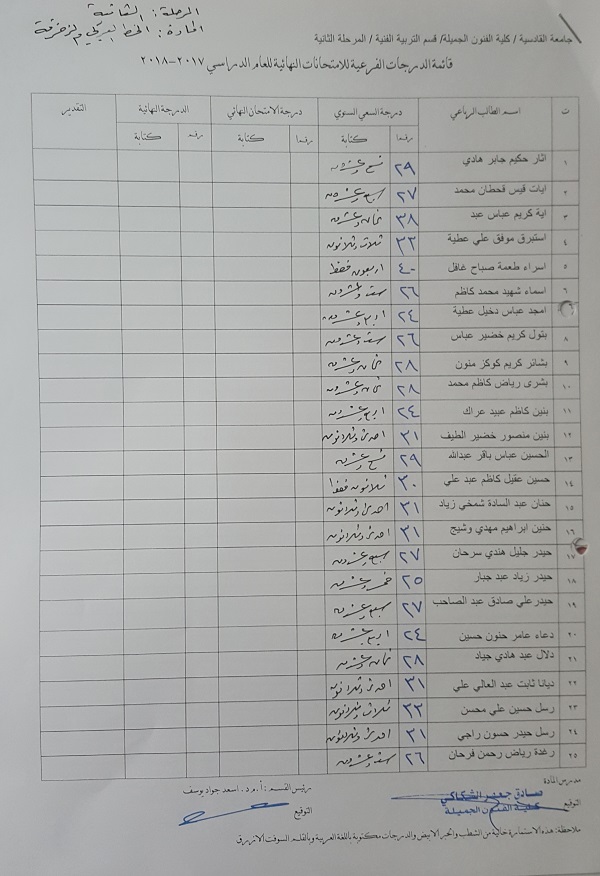 المرحلة: الثانية
المادة: الخط العربي والزخرفة
جامعة القادسية / كلية الفنون الجميلة/ قسم التربية الفنية / المرحلة الثانية
قائمة الدرجات الفرعية للامتحانات النهائية للعام الدراسي ٢٠١٧-٢٠١٨
ت اسم الطالب الرباعي درجة السعي السنوي درجة الامتحان النهائي الدرجة النهائية التقدير
رقما كتابة رقما كتابة رقما كتابة
١ اثار حكيم جابر هادي ٢٩ تسع وعشرون
٢ ايات قيس قحطان محمد ٢٧ سبع وعشرون
٣ اية كريم عباس عبد ٣٨ ثمان وعشرون
٤ استبرق موفق علي عطية ٣٣ ثلاث وثلاثون
٥ اسراء طعمة صباح غافل ٤٠ اربعون فقط
٦ اسماء شهيد محمد كاظم ٢٦ ستة وعشرون
امجد عباس دخيل عطية ٢٤ اربع وعشرون
٨ بتول كريم خضير عباس ٢٦ ستة وعشرون
٩ بشائر كريم كوكز منون ٢٨ ثمان وعشرون
١٠ بشرى رياض كاظم محمد ٢٨ ثمان وعشرون
١١ بنين كاظم عبيد عراك ٢٤ اربع وعشرون
١٢ بنين منصور خضير الطيف ٣١ احدى وثلاثون
١٣ الحسين عباس باقر عبدالله ٢٩ تسع وعشرون
١٤ حسين عقيل كاظم عبد علي ٣٠ ثلاثون فقط
١٥ حنان عبد السادة شمخي زياد ٣١ احدى وثلاثون
١٦ حنين ابراهيم مهدي وشيج ٣١ احدى وثلاثون
١٧ حيدر جليل هندي سرحان ٢٧ سبع وعشرون
١٨ حيدر زياد عبد جبار ٢٥ خمس وعشرون
١٩ حيدرعلي صادق عبد الصاحب ٢٧ سبع وعشرون
٢٠ دعاء عامر حنون حسين ٢٤ اربع وعشرون
٢١ دلال عبد هادي جياد ٢٨ ثمان وعشرون
٢٢ ديانا ثابت عبد العالي علي ٣١ احدى وثلاثون
٢٣ رسل حسين علي محسن ٣٣ ثلاث وثلاثون
٢٤ رسل حيدر حسون راجي ٣١ احدى وثلاثون
٢٥ رغدة رياض رحمن فرحان ٢٦ ستة وعشرون
مدرس المادة رئيس القسم : أ.م.د. اسعد جواد يوسف
صادق جعفر
التوقيع كلية الفنون الجميلة التوقيع
ملاحظة: هذه الاستمارة خالية من الشطب والحبر الابيض والدرجات مكتوبة باللغة العربية وبالقلم السوفت الازرق